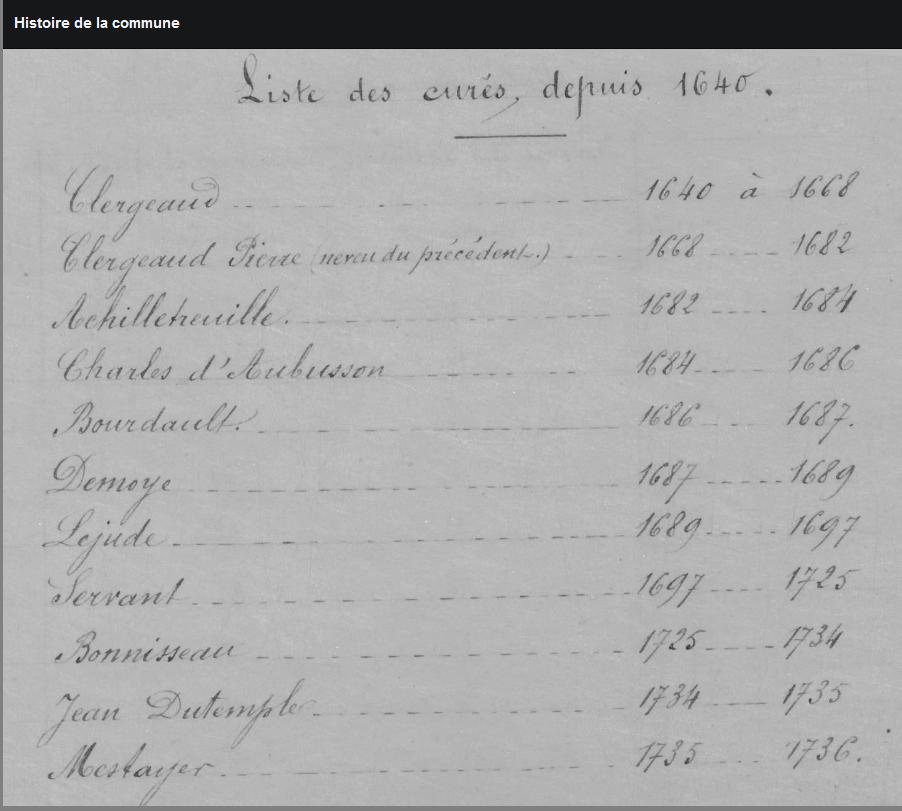 Histoire de la commune
Liste des curés, depuis 1640.
Clergeaud 1640 à 1668
Clergeaud Pierre (neveu du précédent.) 1668 1682
Achilletreuille. 1682 1684
Charles d'Aubusson 1684 1686
Bourdault. 1686 1687.
Demoye 1687 1689
Lejude 1689 1697
Servant 1697 1725
Bonnisseau 1725 1734
Jean Dutemple 1734 1735
Mestayer 1735 1736.